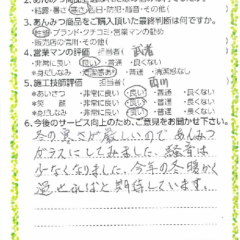 ・結露・暑さ・寒さ・防犯・騒音・その他( )
3.あんみつ商品をご購入頂いた最終判断は何ですか。
性能・ブランド・クチコミ・営業マンの勧め
販売店の信用・その他( )
4.営業マンの評価 担当者( )
*非常に良い ・良い ・普通 ・良くない
*身だしなみ ・清潔感あり ・普通 ・清潔感なし
5.施工技術評価 担当者( 西川 )
*あいさつ ・非常に良い ・良い ・普通 ・良くない
*笑顔 ・非常に良い ・良い ・普通 ・良くない
*身だしなみ ・非常に良い ・良い ・普通 ・良くない
6.今後のサービス向上のため、ご意見をお聞かせ下さい。
冬の寒さが厳しいのであんみつ
ガラスにしてみました。騒音は
少なくなりました。今年の冬暖かく
過せればと期待しています。